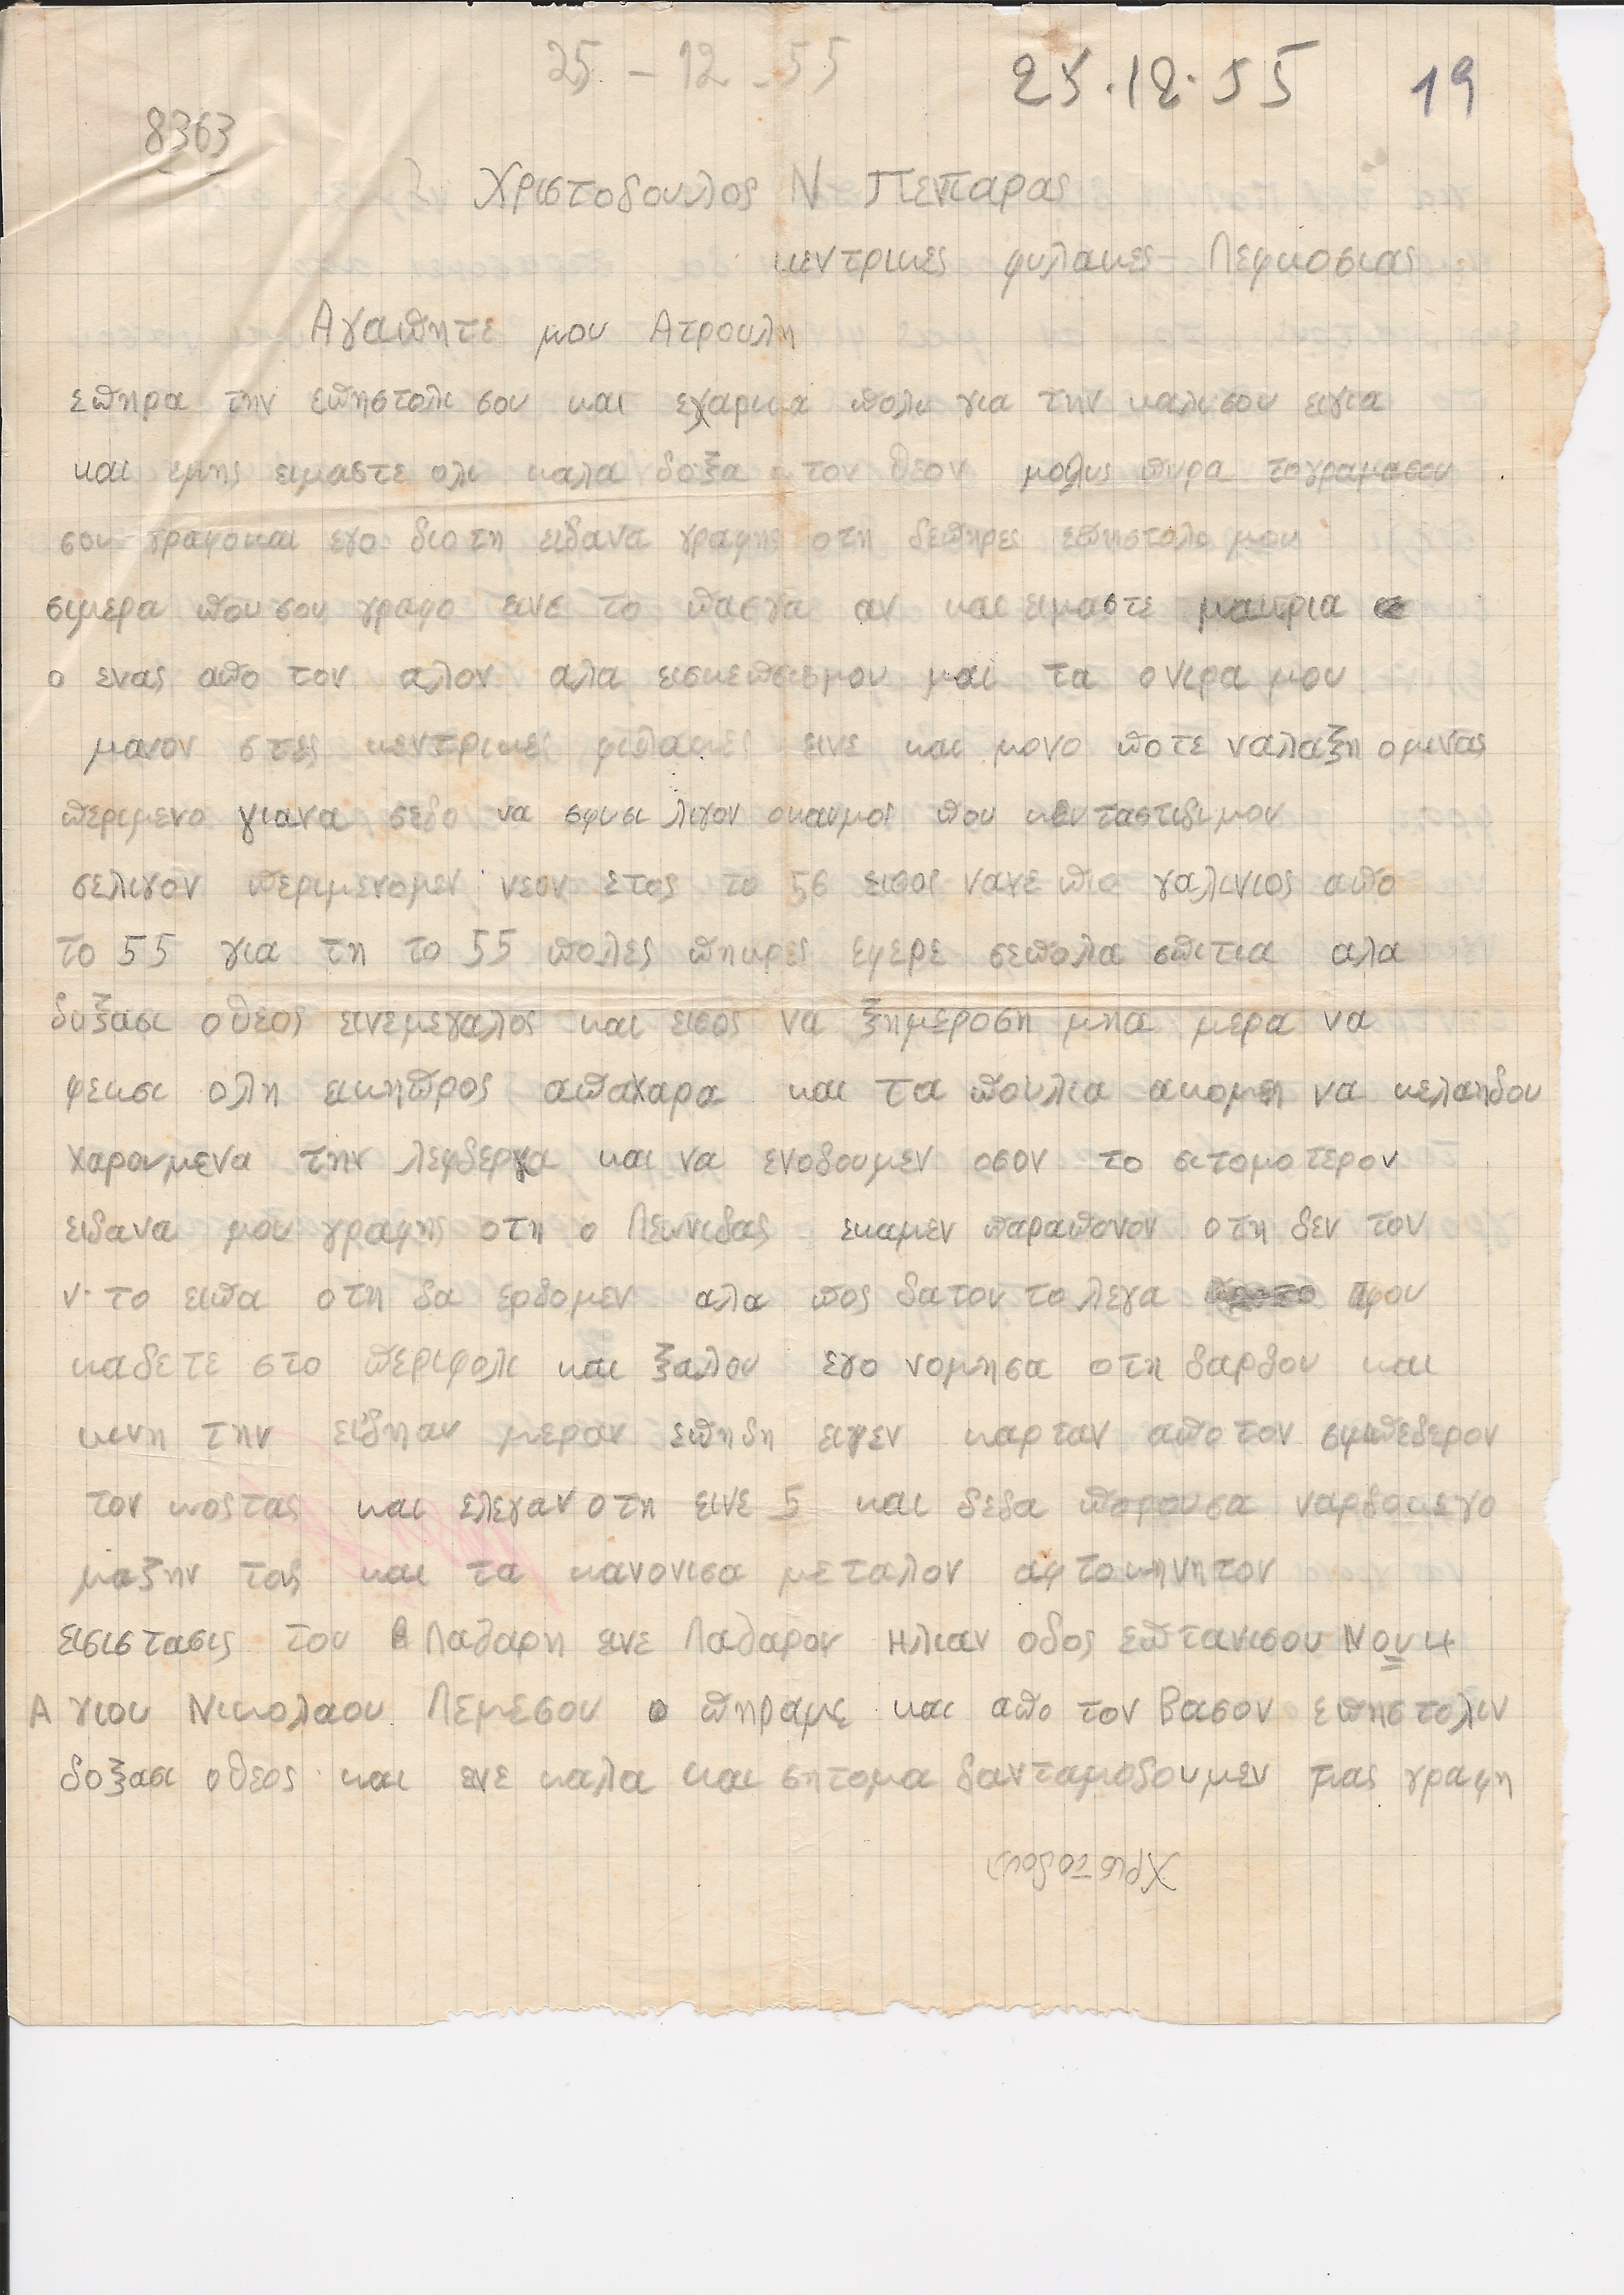 25 - 12 - 55 25.12.55 19
8363
Χριστοδουλος Ν Πεπαρας
κεντρικες φυλακες Λεφκοσιας
Αγαπητε μου Ατρουλη
επηρα την επηστολι σου και εχαρικα πολυ για την καλισου ειγια
και εμης ειμαστε ολι καλα δοξα τον θεον μολις πιρα τογραμασου
σου γραφοκαι εγο διοτη ειδανα γραφης οτη δεπηρες επηστολι μου
σιμερα που σου γραφο εινε το πασχα αν και ειμαστε μακρια
ο ενας απο τον αλον αλα εισκεπσισμου μαι τα ονιρα μου
μανον στες κεντρικες φιλακες εινε και μονο ποτε ναλαξη ομινας
περιμενο γιανα σεδο να σφισι λιγον οκαυμος που κενταστιδιμου
σελιγον περιμενομεν νεον ετος το 56 εισος νανε πιο γαλινιος απο
το 55 για τη το 55 πολες πηκρες εφερε σεπολα σπιτια αλα
δοξασι ο θεος εινεμεγαλος και εισος να ξημεροση μηα μερα να
φεκσι ολη εικηπρος απαχαρα και τα πουλια ακομη να κελαηδου
χαρουμενα την λεφδεργα και να ενοδουμεν οσον το σιτομοτερον
ειδανα μου γραφης οτη ο Λεωνιδας εκαμεν παραπονον οτη δεν τον
ν. το ειπα οτη δα ερδομεν αλα πος δατον το λεγα αφου
καδετε στο περιφολι και ξαλου εγο νομησα οτη δαρδου και
κινη την ειδηαν μεραν επηδη ειχεν καρταν απο τον σφμπεδερον
τον κοστας και ελεγαν οτη εινε 5 και δεδα πορουσα ναρδοκεγο
μαζην τους και τα κανονισα μεταλον αφτοκηνητον
εισιστασις του Λαζαρη εινε Λαζαρου Ηλιαν οδος επτανισου Νου 4
Αγιου Νικολαου Λεμεσου πηραμε και απο τον Βασον επηστολιν
δοξασι ο θεος και ενε καλα και σητομα δανταμοδουμεν μας γραφη
Χριστοδου